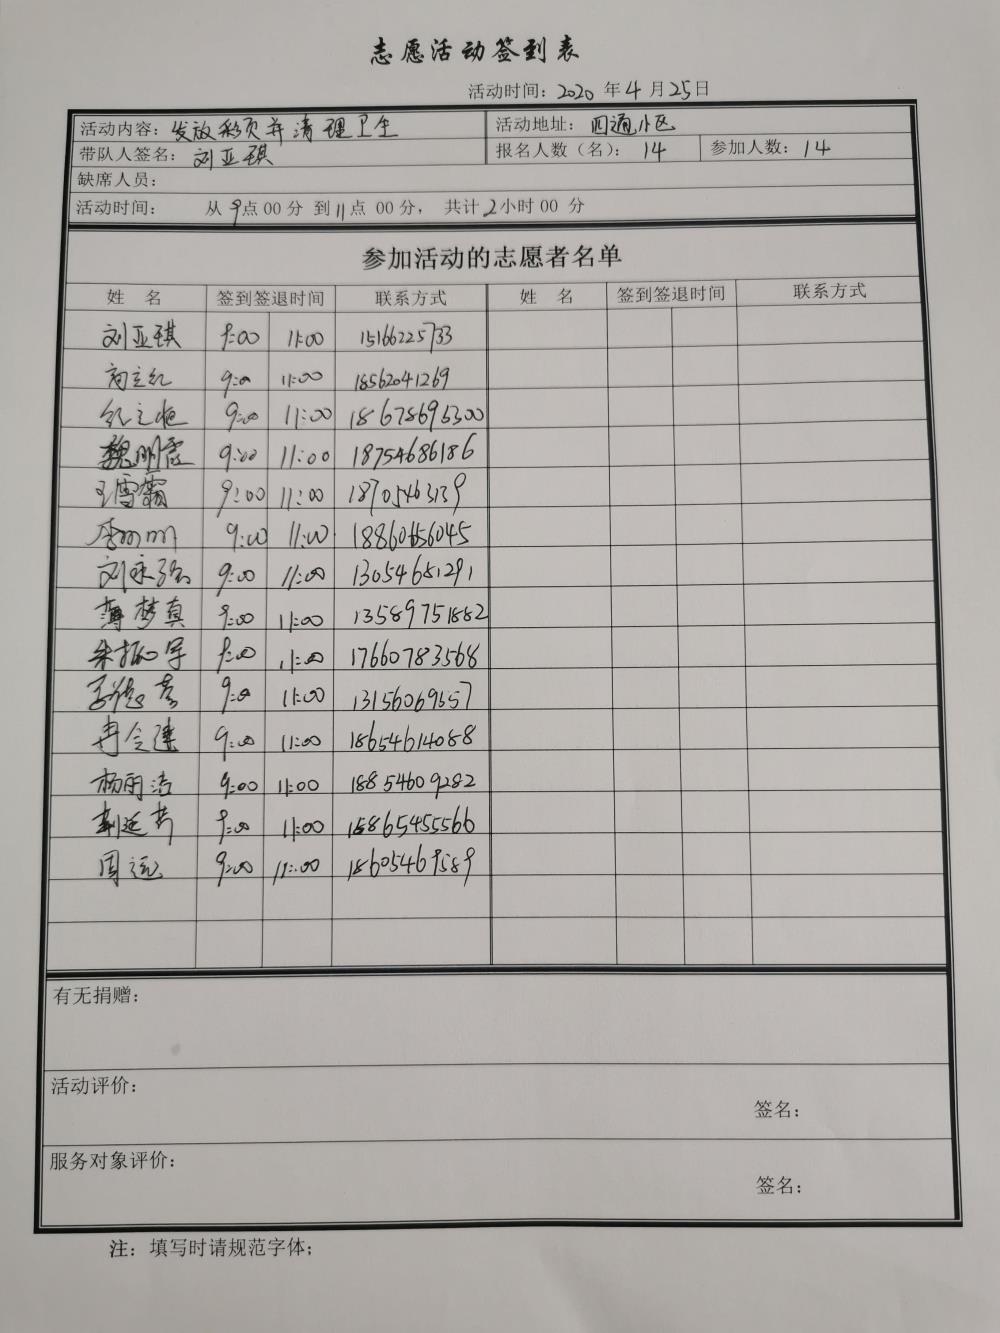 志愿活动签到表
活动时间：2020 年 4 月 25 日
活动内容：发放彩页并清理卫生 活动地址：四通小区
带队人签名：刘亚琪 报名人数（名）：14 参加人数：14
缺席人员：
活动时间： 从 9 点 00 分 到 11 点 00 分， 共计 2 小时 00 分
参加活动的志愿者名单
姓 名 签到签退时间 联系方式 姓 名 签到签退时间 联系方式
刘亚琪 9:00 11:00 15166225733
9:00 11:00 18562041269
9:00 11:00 18678695300
魏明霞 9:00 11:00 18754686186
王雪霜 9:00 11:00 18705463139
9:00 11:00 18860656045
刘永强 9:00 11:00 13054681291
薄梦真 9:00 11:00 13589751882
朱振宇 9:00 11:00 17660783568
9:00 11:00 13156069557
冉令建 9:00 11:00 18654614088
杨雨洁 9:00 11:00 18854609282
9:00 11:00 15865455566
周远 9:00 11:00 18605469589
有无捐赠：
活动评价：
签名：
服务对象评价：
签名：
注：填写时请规范字体；